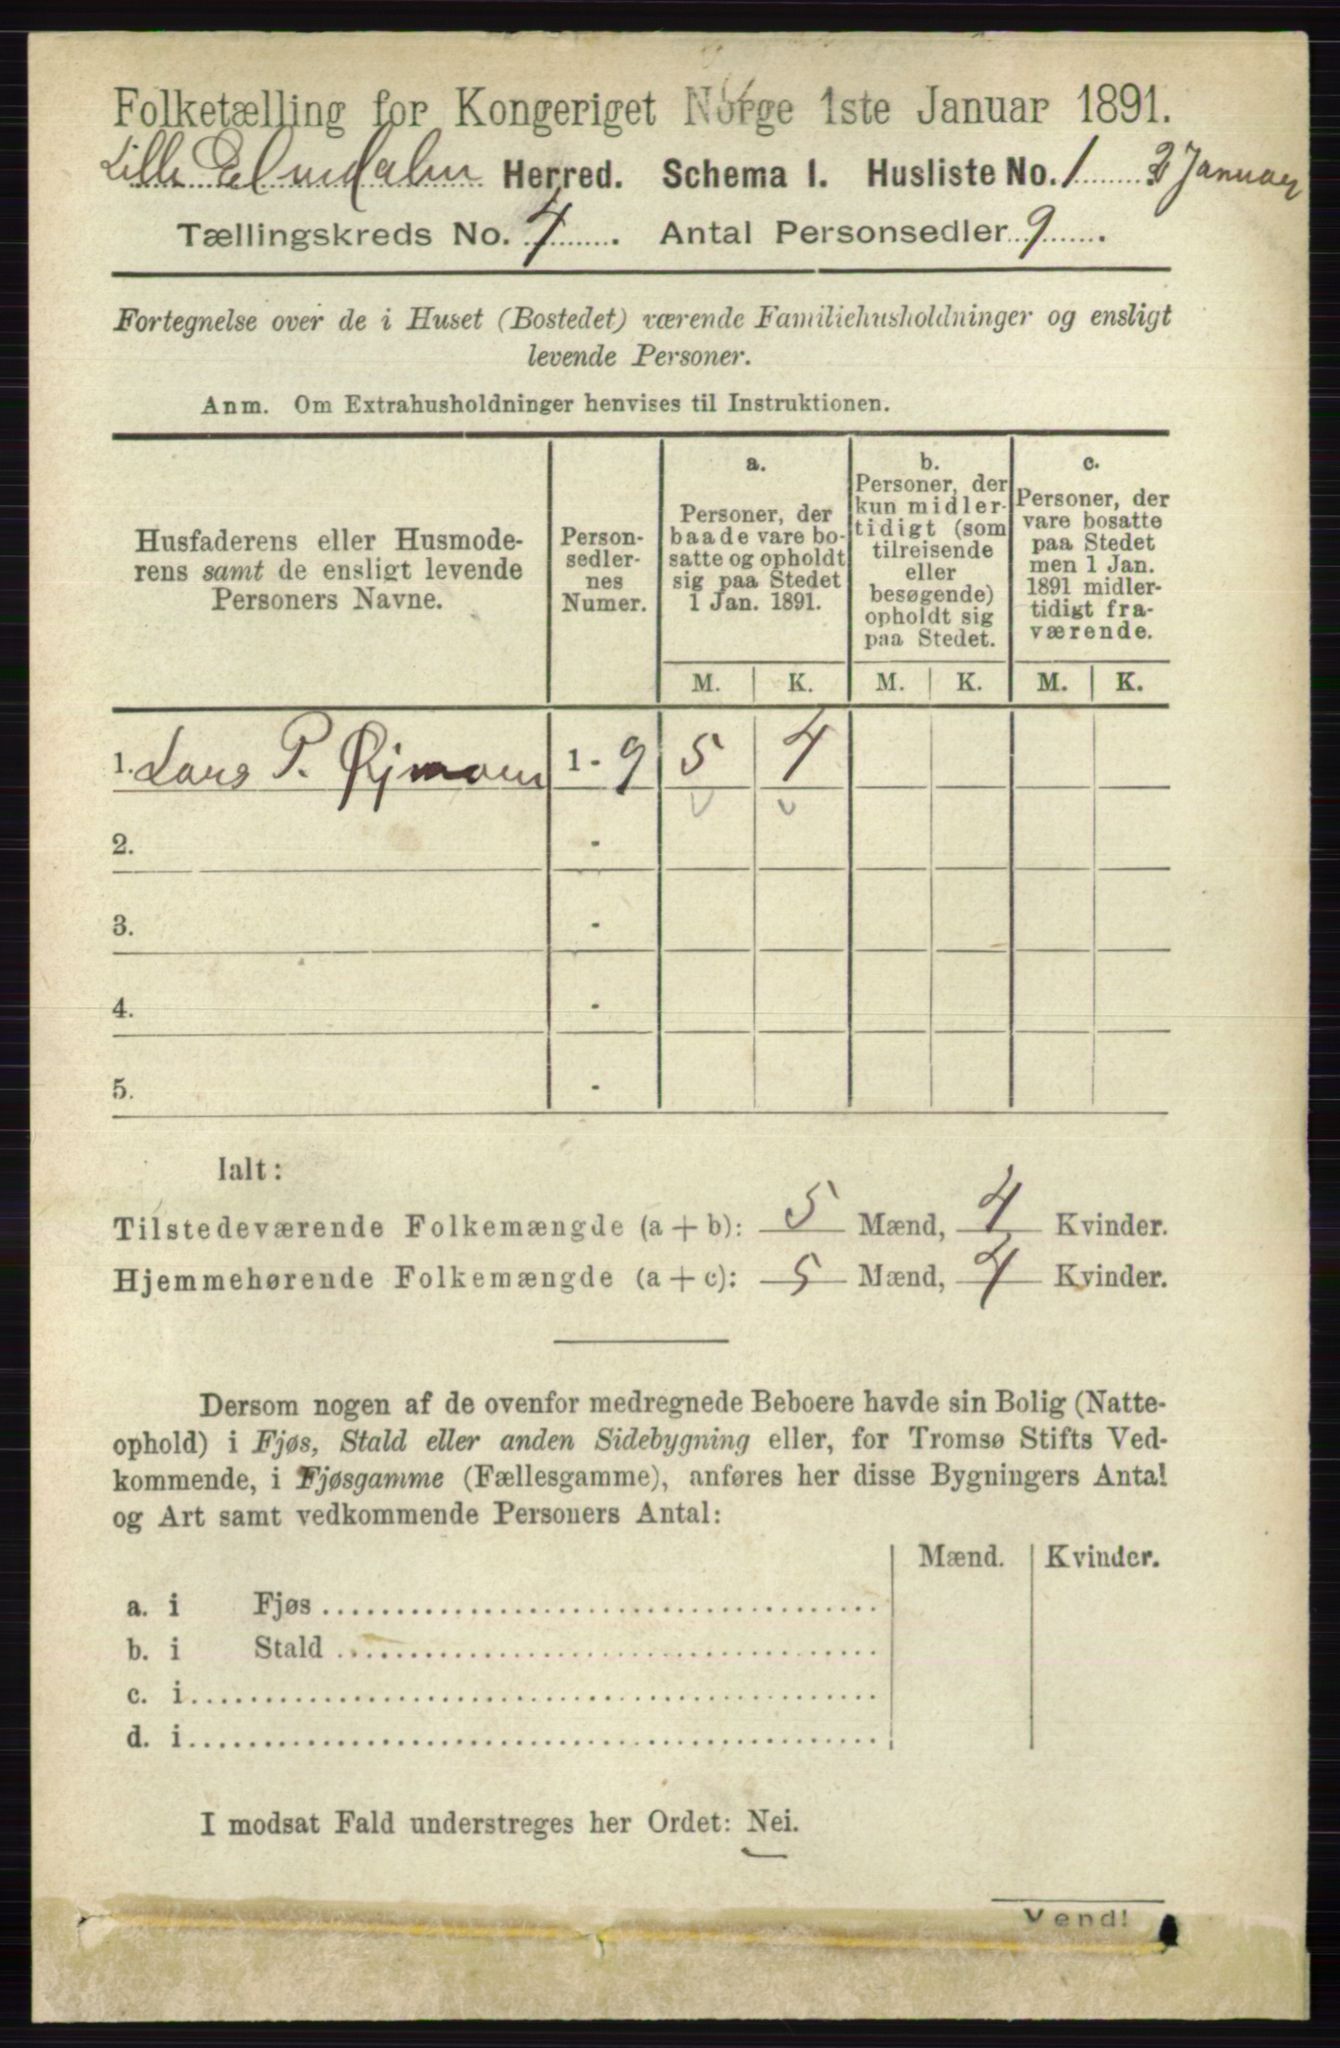 Folketælling for Kongeriget Norge 1ste Januar 1891.
Lille Elvedalen Herred. Schema I. Husliste No. 1 2 Januar
Tællingskreds No. 4. Antal Personsedler 9.
Fortegnelse over de i Huset (Bostedet) værende Familiehusholdninger og ensligt
levende Personer.
Anm. Om Extrahusholdninger henvises til Instruktionen.
Husfaderens eller Husmode-
rens samt de ensligt levende
Personers Navne.
Person-
sedler-
nes
Numer.
a.
Personer, der
baade vare bo-
satte og opholdt
sig paa Stedet
1 Jan. 1891.
b.
Personer, der
kun midler-
tidigt (som
tilreisende
eller
besøgende)
opholdt sig
paa Stedet.
c.
Personer, der
vare bosatte
paa Stedet
men 1 Jan.
1891 midler-
tidigt fra-
værende.
M. K. M. K. M. K.
1. Lars P. Øjmoen 1 - 9 5 4
2. -
3. -
4. -
5. -
Ialt:
Tilstedeværende Folkemængde (a + b): 5 Mænd, 4 Kvinder.
Hjemmehørende Folkemængde (a + c): 5 Mænd, 4 Kvinder.
Dersom nogen af de ovenfor medregnede Beboere havde sin Bolig (Natte-
ophold) i Fjøs, Stald eller anden Sidebygning eller, for Tromsø Stifts Ved-
kommende, i Fjøsgamme (Fællesgamme), anføres her disse Bygningers Antal
og Art samt vedkommende Personers Antal:
Mænd. Kvinder.
a. i Fjøs
b. i Stald
c. i
d. i
I modsat Fald understreges her Ordet: Nei.
Vend!